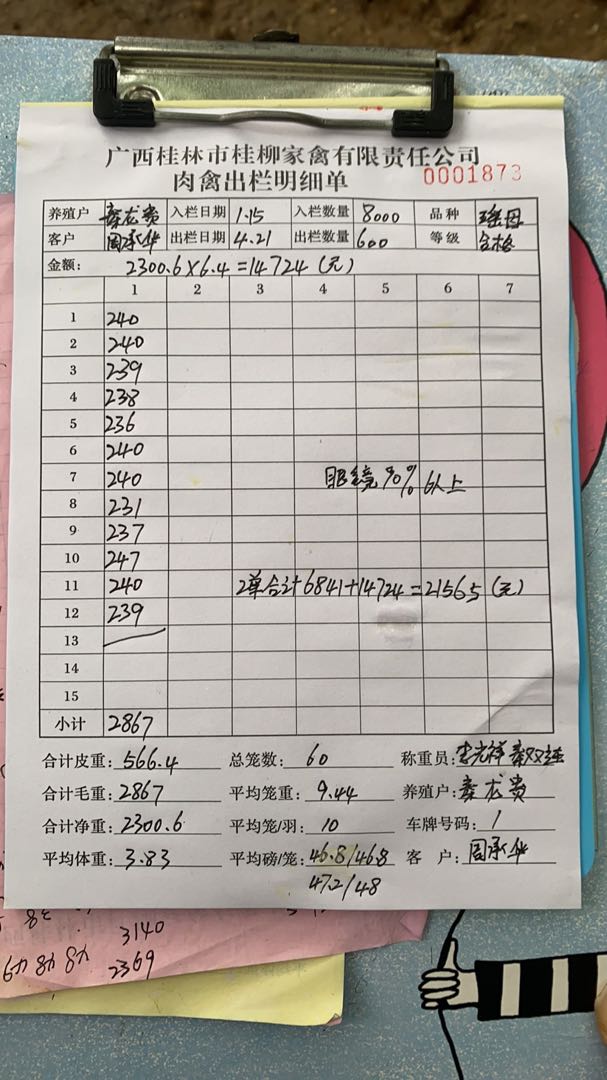 广西桂林市桂柳家禽有限责任公司
肉禽出栏明细单 0001873
养殖户 秦龙贵 入栏日期 1.15 入栏数量 8000 品种 瑶母
客户 周承华 出栏日期 4.21 出栏数量 600 等级 合格
金额: 2300.6×6.4=14724(元)
1 2 3 4 5 6 7
1 240
2 240
3 239
4 238
5 236
6 240
7 240 眼镜90%以上
8 231
9 237
10 247
11 240 2单合计6841+14724=21565(元)
12 239
13
14
15
小计 2867
合计皮重: 566.4 总笼数: 60 称重员: 李光祥
合计毛重: 2867 平均笼重: 9.44 养殖户: 秦龙贵
合计净重: 2300.6 平均笼/羽: 10 车牌号码: 1
平均体重: 3.83 平均磅/笼: 46.8/46.8 客 户: 周承华
47.2/48
3140
2369